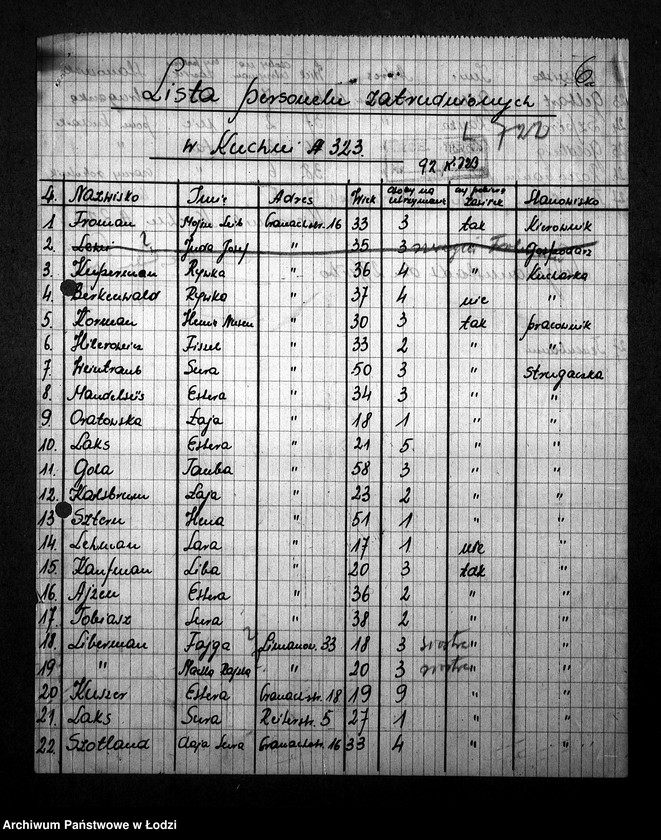 6
Lista personelu zatrudnionych
L 722
w Kuchni № 323.
92 N. 323
L. Nazwisko Imię Adres Wiek Osoby na utrzymaniu czy pobiera zasiłek Stanowisko
1 Froman Mojże Leib Gnadenstr. 16 33 3 tak Kierownik
2. Juda Josef " 35 3 Gospodarz
3. Kuperman Rywka " 36 4 " Kucharka
4. Berkenwald Rywka " 37 4 nie "
5. Korman " 30 3 tak pracownik
6. Fiszel " 33 2 " "
7 Weintraub Sura " 50 3 " Strugaczka
8. Estera " 34 3 " "
9. Oratowska Łaja " 18 1 " "
10. Laks Estera " 21 5. " "
11. Gola Tauba " 58 3 " "
12. Łaja " 23 2 " "
13 Sztern Hena " 51 1 " "
14. Lehman Sara " 17 1 nie "
15. Kaufman Liba " 20 3 tak "
16. Ajzen Estera " 36 2 " "
17. Tobiasz Sura " 38 2 " "
18. Liberman Fajga Limanow. 33 18 3 siostra " "
19 " " 20 3 siostra " "
20 Kuszer Estera 18 19 9 " "
21. Laks Sura Reiterstr. 5 27 1 " "
22. Szotland Chaja Sura 16 33 4 " "
Archiwum Państwowe w Łodzi